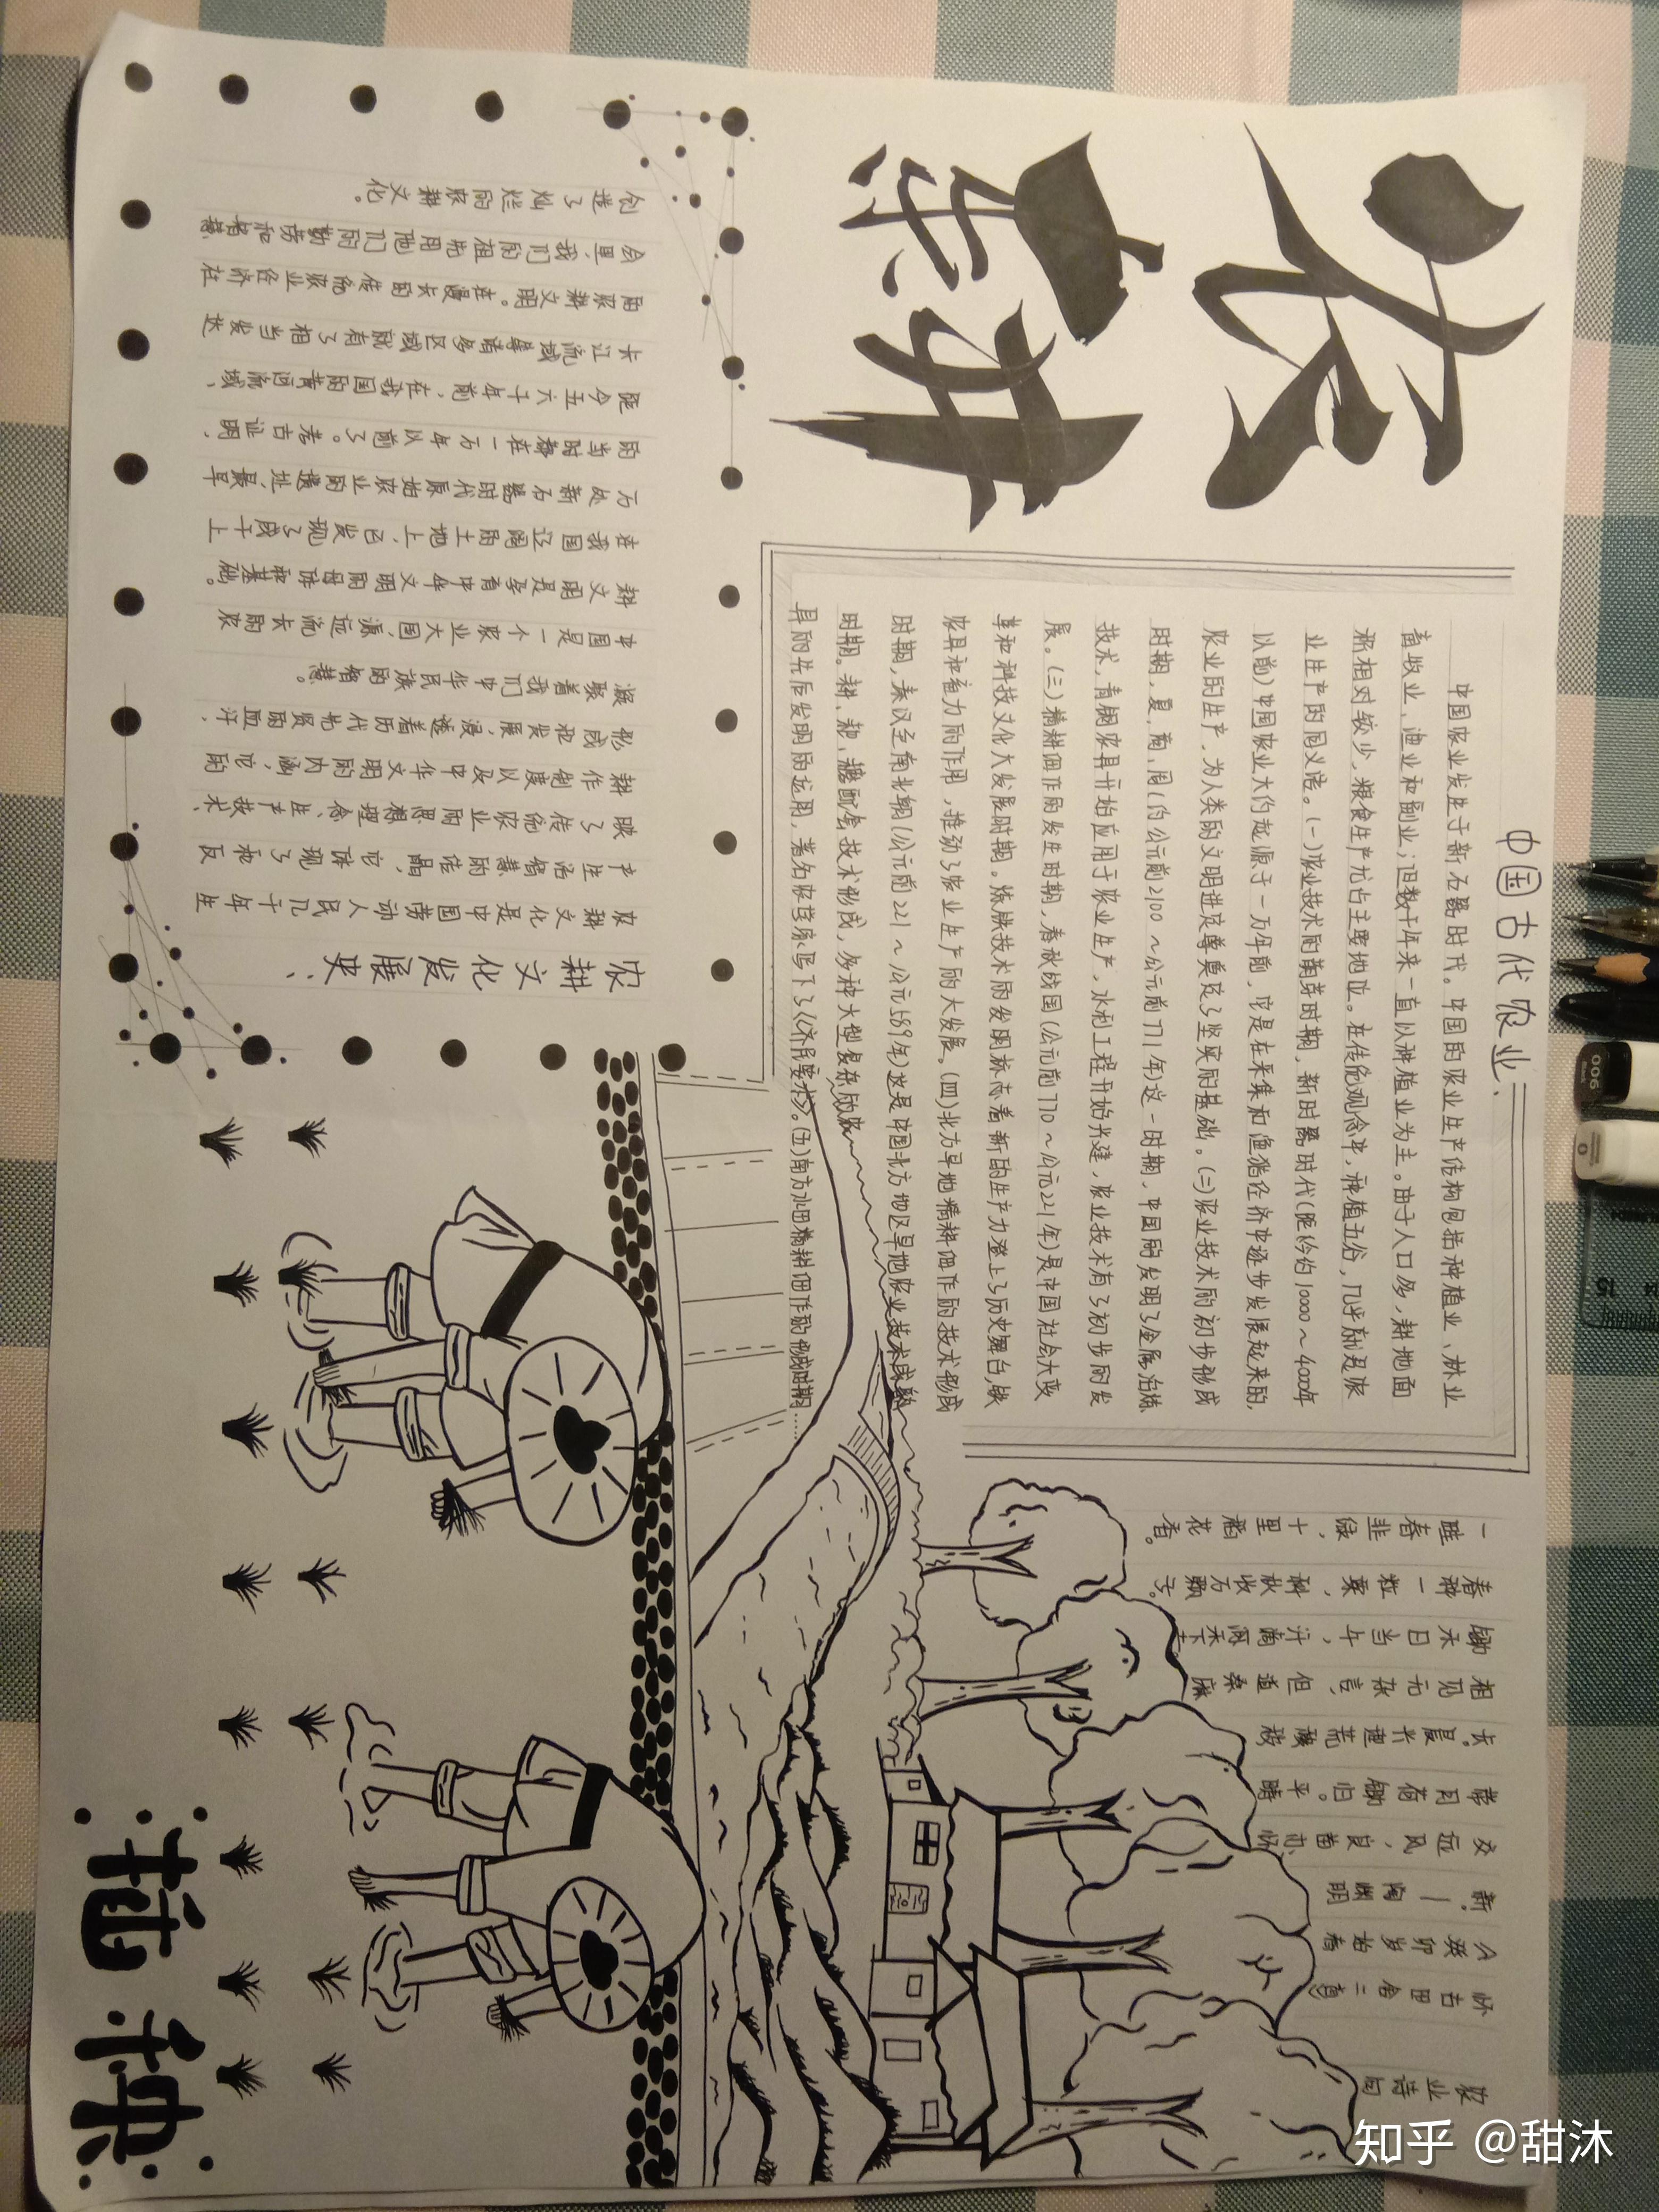 农耕
中国古代农业:
中国农业发生于新石器时代。中国的农业生产结构包括种植业、林业
畜牧业、渔业和副业；但数千年来一直以种植业为主。由于人口多，耕地面
积相对较少，粮食生产尤占主要地位。在传统观念中，种植五谷，几乎就是农
业生产的同义语。(一)农业技术的萌芽时期，新时器时代(距今约10000～4000年
以前)中国农业大约起源于一万年前，它是在采集和渔猎经济中逐步发展起来的，
农业的生产，为人类的文明进度尊奠定了坚实的基础。(二)农业技术的初步形成
时期，夏、商、周(约公元前2100～公元前771年)这一时期，中国的发明了金属冶炼
技术，青铜农具开始应用于农业生产，水利工程开始兴建，农业技术有了初步的发
展。(三)精耕细作的发生时期，春秋战国(公元前770～公元221年)是中国社会大变
革和科技文化大发展时期。炼铁技术的发明标志着新的生产力登上了历史舞台,铁
农具和畜力的作用，推动了农业生产的大发展。(四)北方旱地精耕细作的技术形成
时期，秦汉至南北朝(公元前221～公元589年)这是中国北方地区旱地农业技术成熟
时期。耕、耙、耱配套技术形成，多种大型复杂农
具的先后发明的运用，著名农学家写下了《齐民要术》。(五)南方水田精耕细作的形成时期……
农业诗句
怀古田舍二首
癸卯岁始春
陶渊明
交远风，良苗亦怀新。
带月荷锄归。平畴
长。晨兴理荒秽
相见无杂言，但道桑麻
锄禾日当午，汗滴禾下土
春种一粒粟，秋收万颗子。
一畦春韭绿，十里稻花香。
农耕文化发展史：
农耕文化是中国劳动人民几千年生
产生活智慧的结晶，它体现了和反
映了传统农业的思想理念、生产技术、
耕作制度以及中华文明的内涵，它的
形成和发展，浸透着历代先贤的血汗，
凝聚着我们中华民族的智慧。
中国是一个农业大国，源远流长的农
耕文明是孕育中华文明的母体和基础。
在我国辽阔的土地上，已发现了成千上
万处新石器时代原始农业的遗址，最早
的当时都在一万年以前了。考古证明，
距今五六千年前，在我国的黄河流域、
长江流域等诸多区域就有了相当发达
的农耕文明。在漫长的传统农业经济社
会里，我们的祖先用他们的勤劳和智慧
创造了灿烂的农耕文化。
插秧
900
0
15
知乎 @甜沐